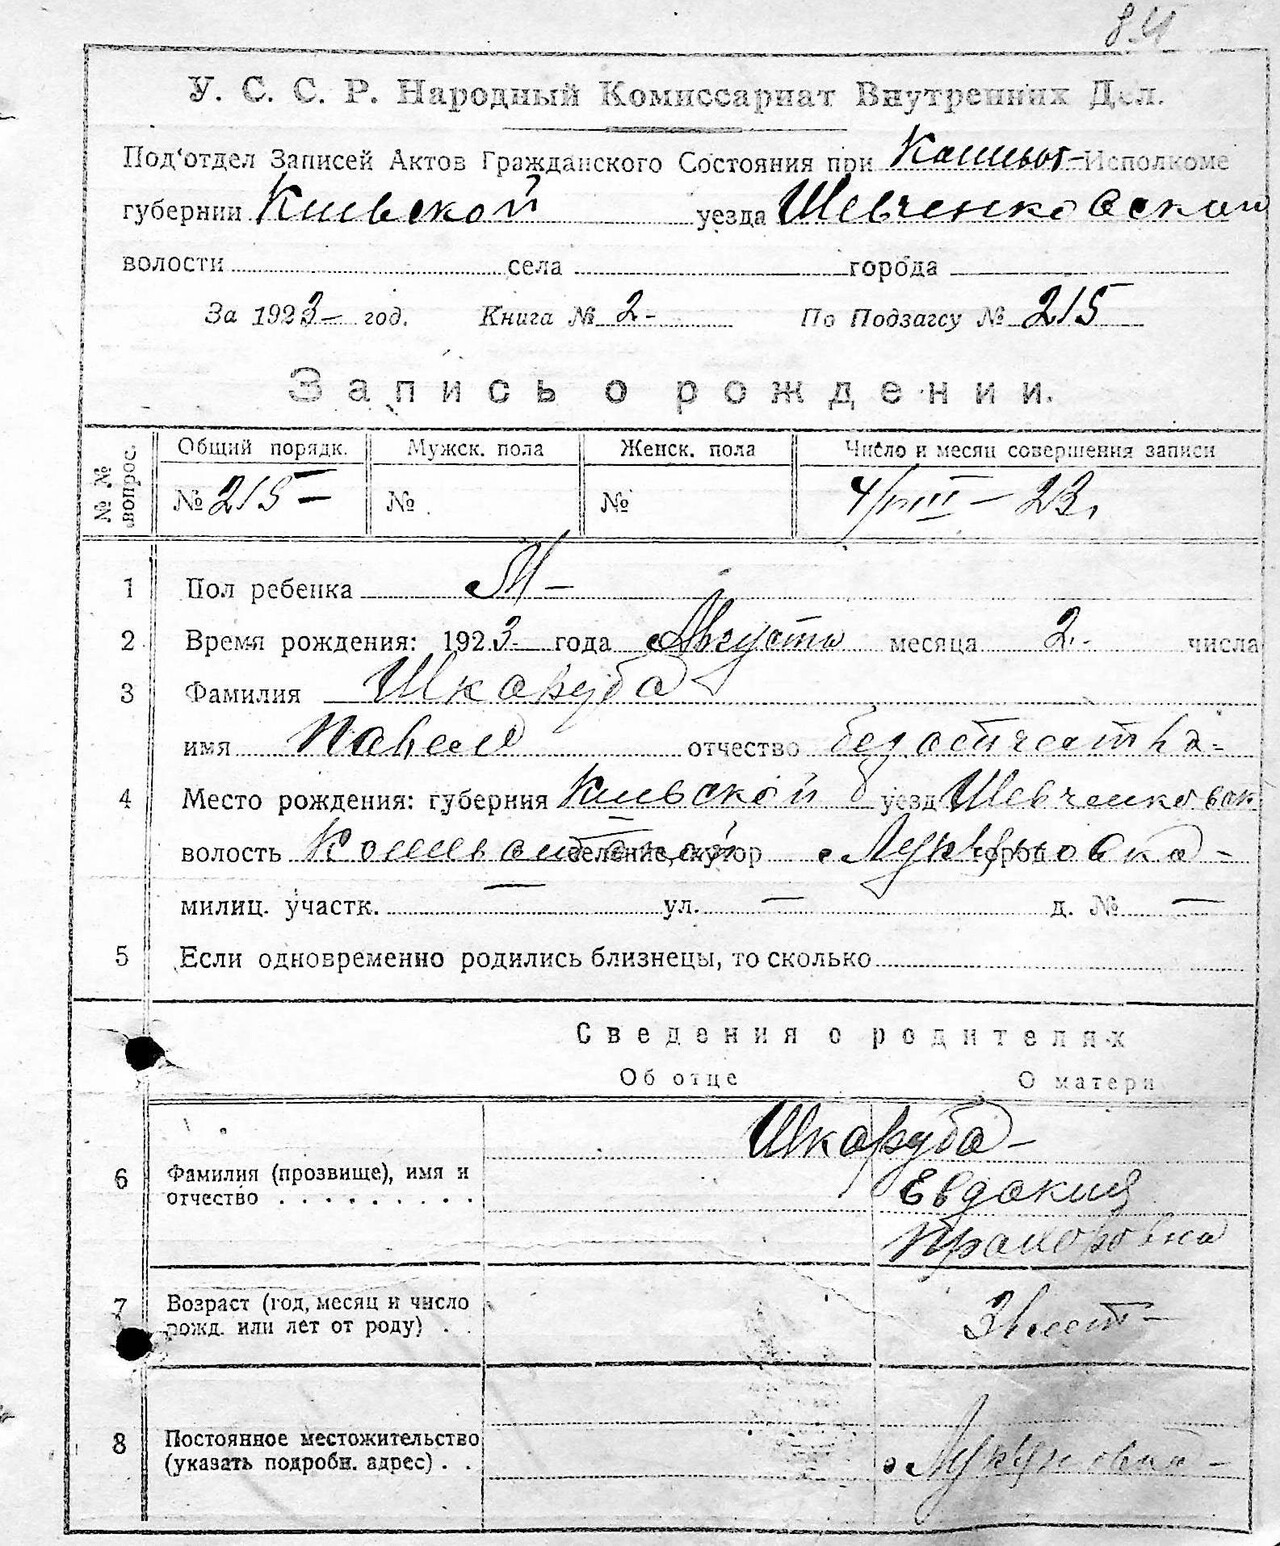 У. С. С. Р. Народный Комиссариат Внутренних Дел.
Под'отдел Записей Актов Гражданского Состояния при Исполкоме
губернии Киевской уезда Шевченковской
волости села города
За 1923 год. Книга № 2- По Подзагсу № 215
Запись о рождении.
№ № вопрос. Общий порядк. Мужск. пола Женск. пола Число и месяц совершения записи
№ 215 № № 4/VIII - 23
1 Пол ребенка М
2 Время рождения: 1923 года Августа месяца 2 числа
3 Фамилия Шкаруба
имя Павел отчество без отчества
4 Место рождения: губерния Киевской уезд Шевченковск
волость селение, хутор город
милиц. участк. — ул. — д. № —
5 Если одновременно родились близнецы, то сколько
Сведения о родителях
Об отце О матери
Шкаруба
6 Фамилия (прозвище), имя и отчество Евдокия
7 Возраст (год, месяц и число рожд. или лет от роду)
8 Постоянное местожительство (указать подробн. адрес)